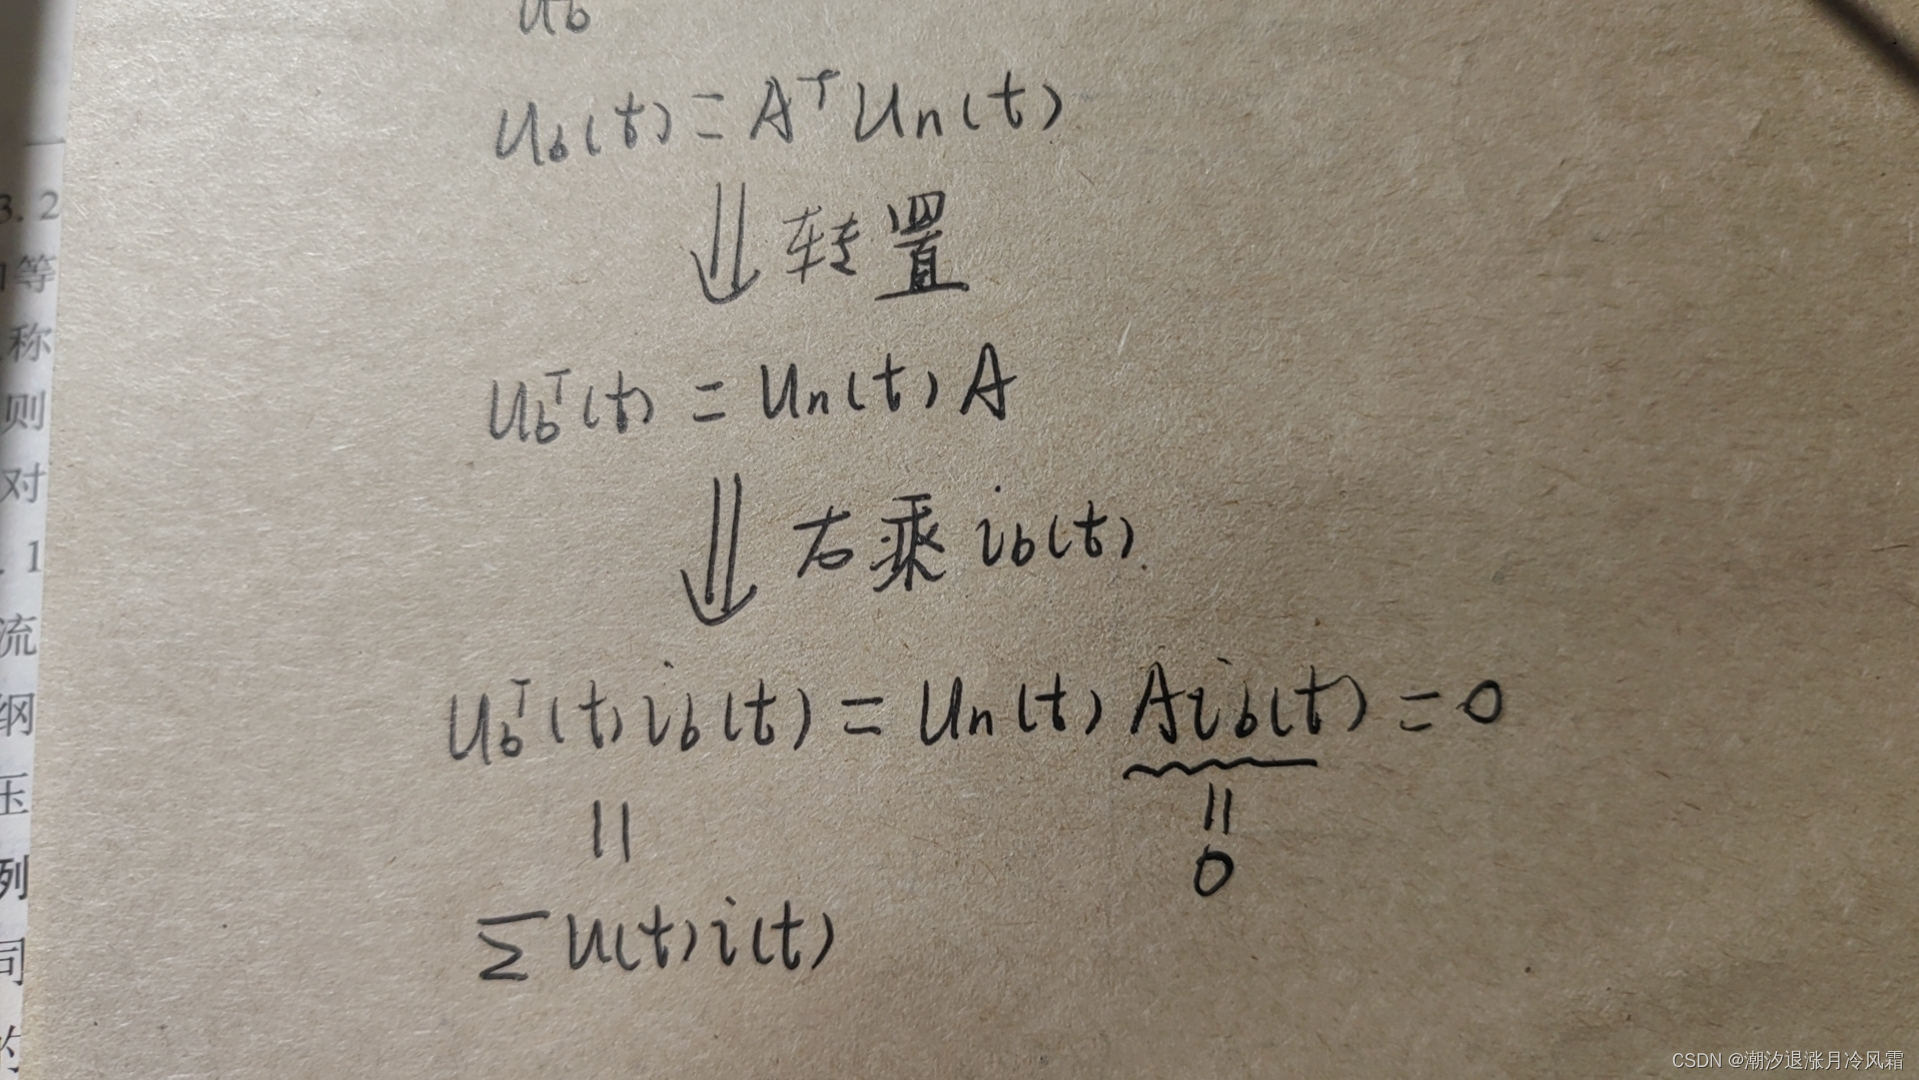 u_b
u_b(t) = A^T u_n(t)
⇓ 转置
u_b^T(t) = u_n(t) A
⇓ 右乘 i_b(t).
u_b^T(t) i_b(t) = u_n(t) A i_b(t) = 0
|| ||
0
Σ u(t) i(t)
3.2
等
称
则
对
.1
流
纲
压
列
司
的
CSDN @潮汐退涨月冷风霜